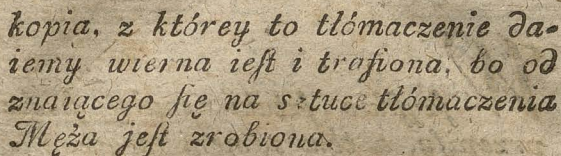 kopia, z którey to tłómaczenie da-
iemy wierna ieſt i trafiona, bo od
znaiącego ſię na sztuce tłómaczenia
Męża jeſt zrobiona.